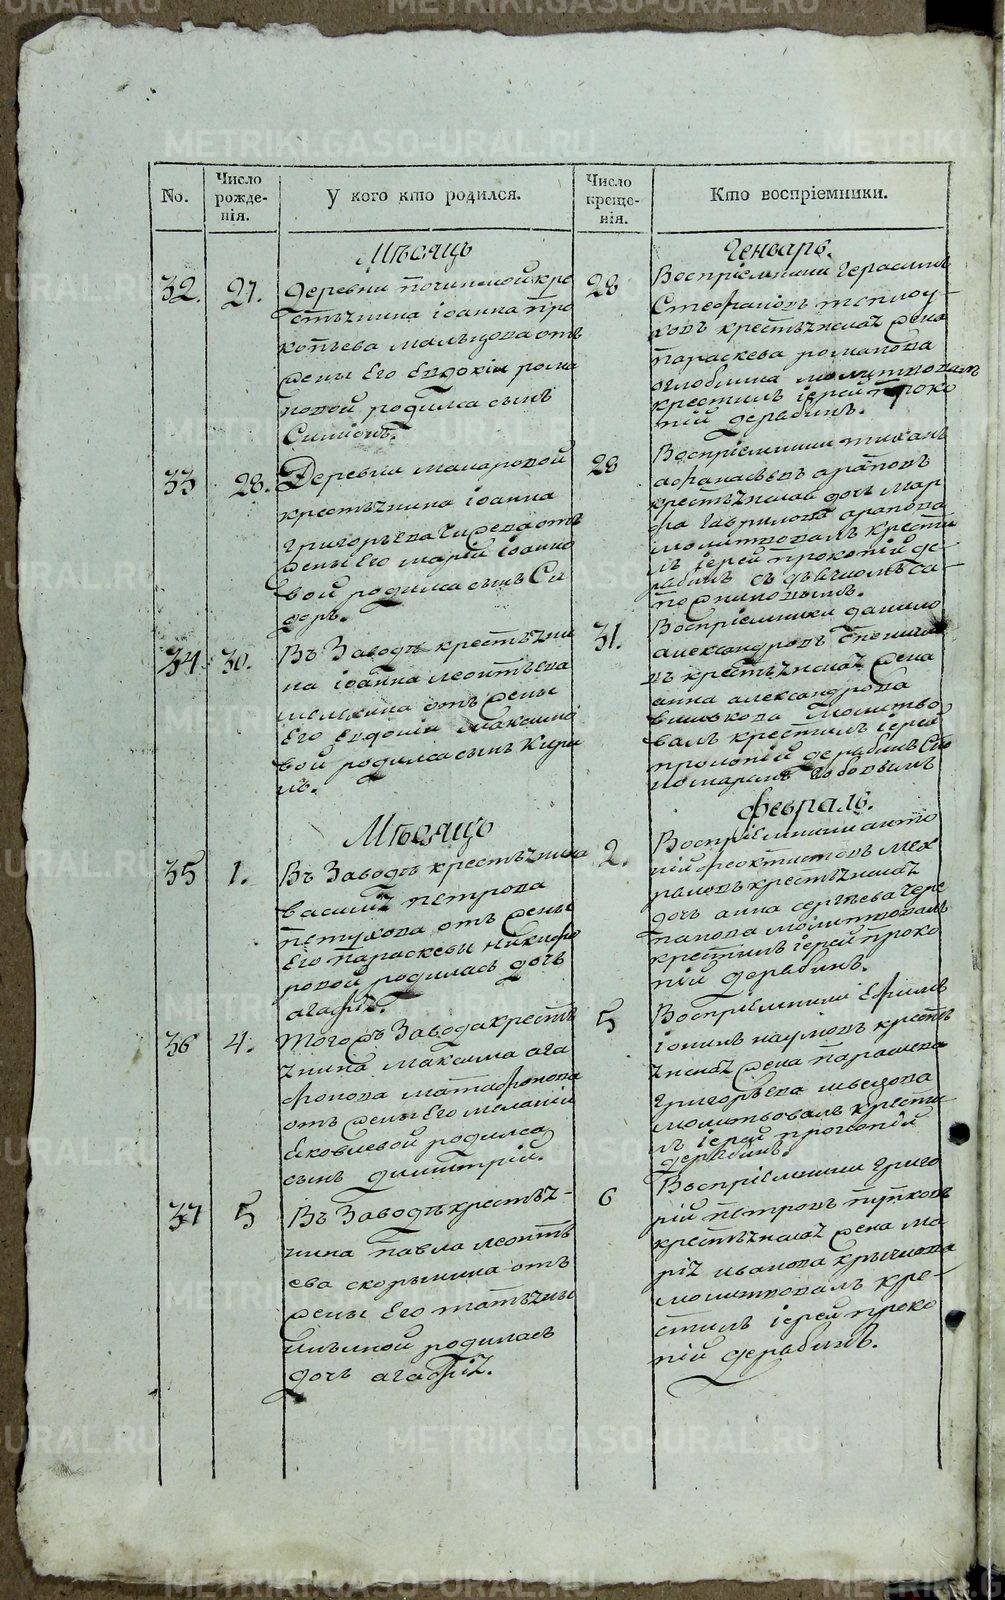 METRIKI.GASO-URAL.RU
No.
Число рожденія.
У кого кто родился.
Число крещенія.
Кто воспріемники.
Мѣсяцъ
Генварь.
32.
27.
деревни починной кре
стьянина іоанна про
копьева мальцова отъ
жены его Евдокіи рома
новой родился сынъ
Симеонъ.
28
Воспріемники Герасимъ
Стефановъ
крестьянская жена
параскева романова
оглоблина молитвовалъ
крестилъ іерей проко
пій дерябинъ.
33
28.
Деревни макаровой
крестьянина іоанна
григорьева отъ
жены его маріи іоанно
вой родился сынъ Си
доръ.
28
Воспріемники
афанасьевъ араповъ
крестьянская дочь мар
фа гаврилова арапова
молитвовалъ крести
лъ іерей прокопій де
рябинъ съ дьячкомъ са
пожниковымъ.
34
30.
Въ Заводѣ крестьяни
на іоанна леонтьева
отъ жены
Его Евдокіи Максимо
вой родился сынъ Кири
лъ.
31.
Воспріемники данило
александровъ
въ крестьянская жена
анна александрова
молитво
валъ крестилъ іерей
прокопій дерябинъ съ по
номаремъ
Мѣсяцъ
Февраль.
35
1.
Въ Заводѣ крестьянина
василія петрова
петухова отъ жены
Его параскевы никифо
ровой родилась дочь
агафія.
2.
Воспріемники анто
ній феоктистовъ
крестьянская
дочь анна сергѣева чере
панова молитвовалъ
крестилъ іерей проко
пій дерябинъ.
36
4.
Того жъ Завода кресть
янина максима ага
фонова
отъ жены Его меланіи
яковлевой родился
сынъ димитрій.
5
Воспріемники Ефимъ
іонинъ наумовъ кресть
янская жена параскева
григорьева швецова
молитвовалъ крести
лъ іерей прокопій
дерябинъ.
37
5
Въ Заводѣ крестья-
нина павла леонть
ева скорынина отъ
жены Его татьяны
ильиной родилась
дочь агафія.
6
Воспріемники григо
рій петровъ пупковъ
крестьянская жена ма
рія иванова
молитвовалъ кре-
стилъ іерей проко
пій дерябинъ.